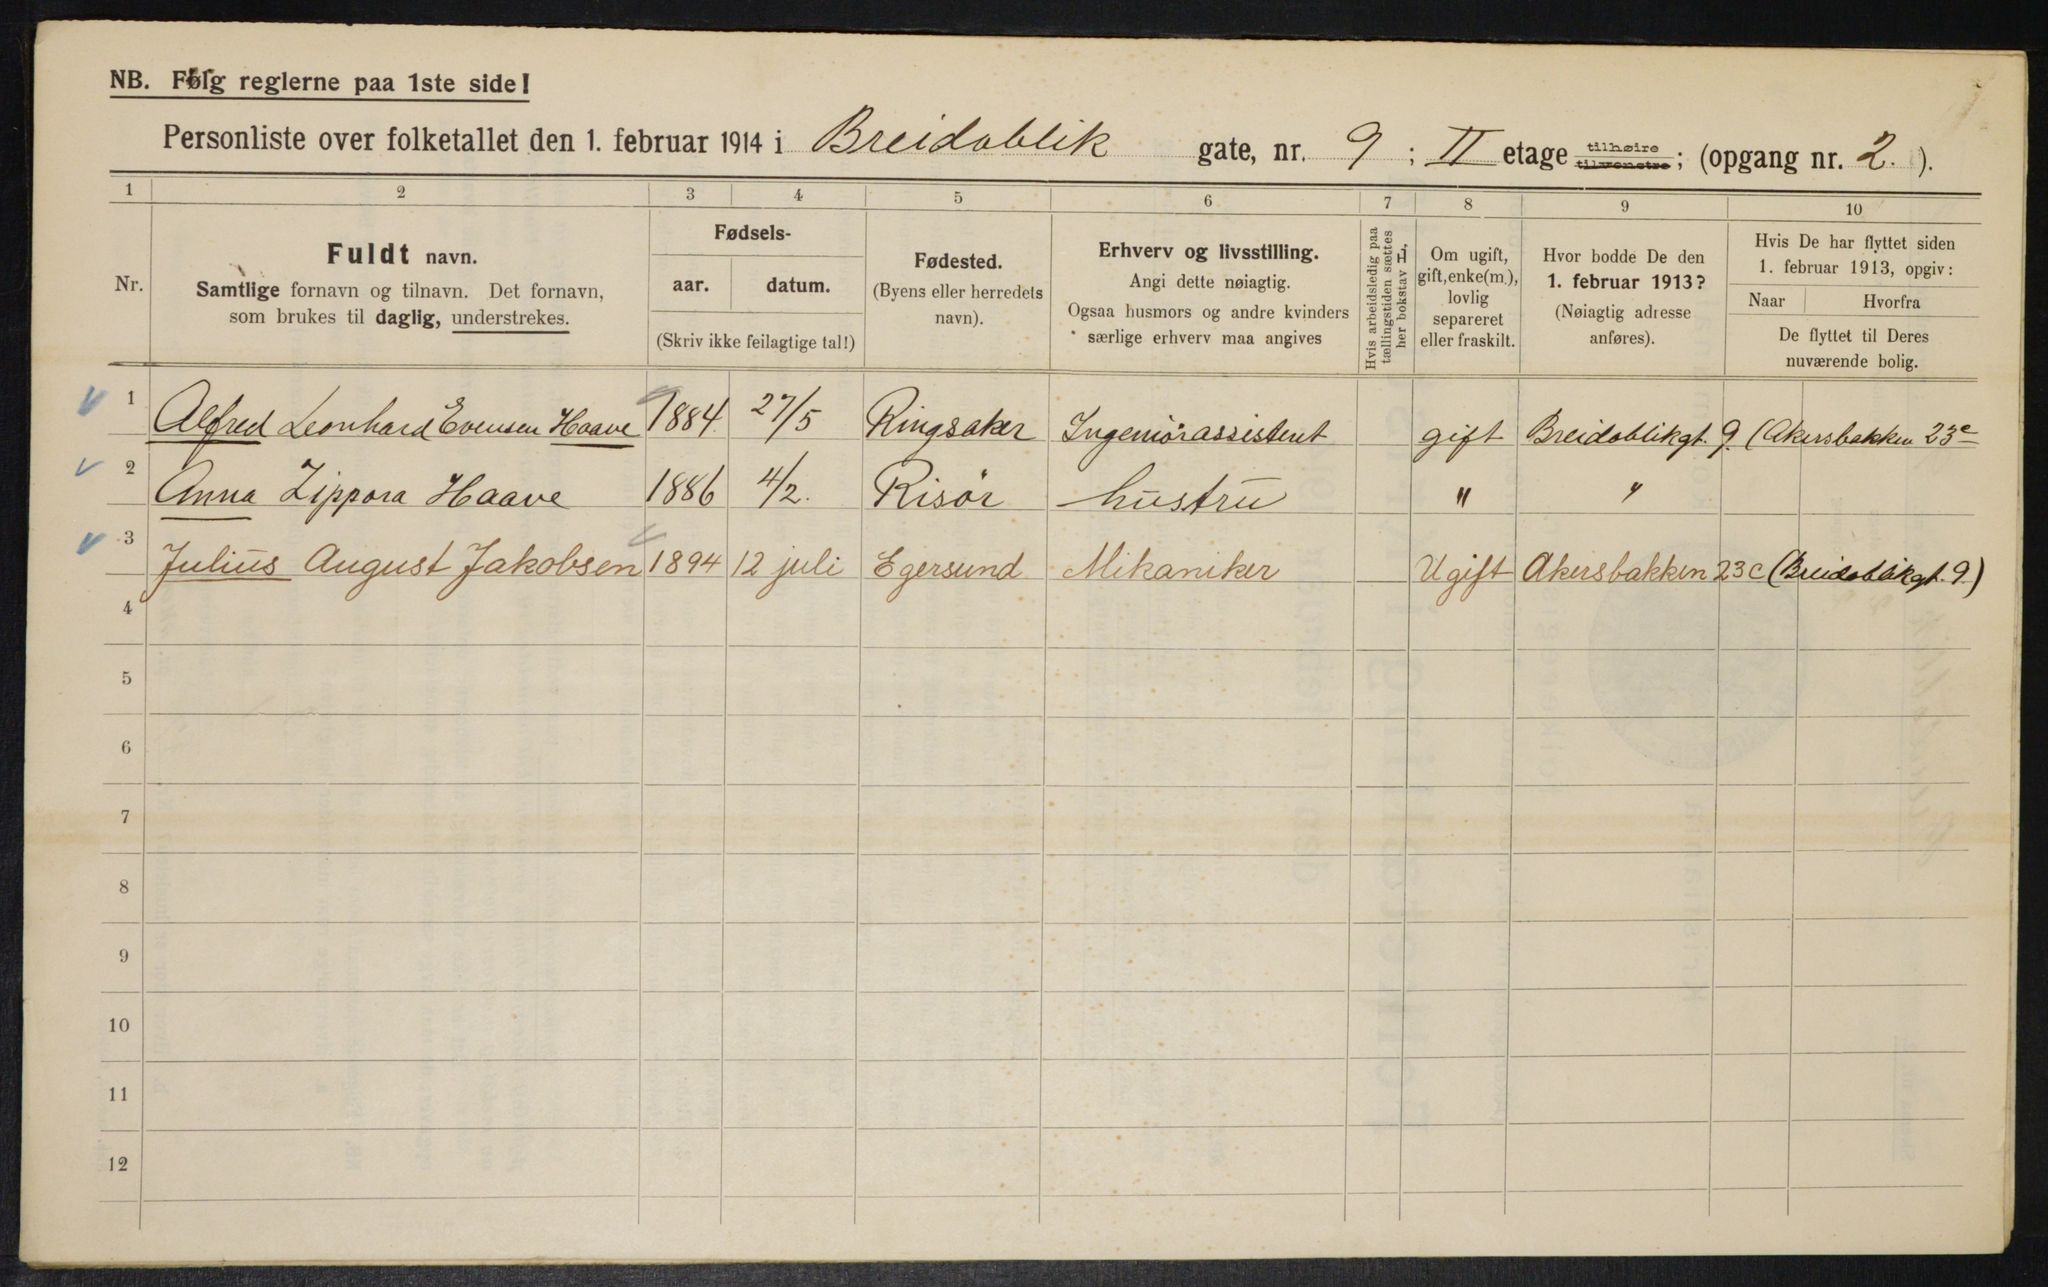 NB. Følg reglerne paa 1ste side!
Personliste over folketallet den 1. februar 1914 i Breidablik gate, nr. 9 ; II etage tilhøire tilvenstre ; (opgang nr. 2. ).
1 2 3 4 5 6 7 8 9 10
Nr.
Fuldt navn.
Samtlige fornavn og tilnavn. Det fornavn,
som brukes til daglig, understrekes.
Fødsels-
aar. datum.
(Skriv ikke feilagtige tal!)
Fødested.
(Byens eller herredets
navn).
Erhverv og livsstilling.
Angi dette nøiagtig.
Ogsaa husmors og andre kvinders
særlige erhverv maa angives
Hvis arbeidsledig paa
tællingstiden sættes
her bokstav L,
Om ugift,
gift, enke(m.),
lovlig
separeret
eller fraskilt.
Hvor bodde De den
1. februar 1913?
(Nøiagtig adresse
anføres).
Hvis De har flyttet siden
1. februar 1913, opgiv:
Naar Hvorfra
De flyttet til Deres
nuværende bolig.
1 Alfred Leonhard Evensen Haave 1884. 27/5 Ringsaker Ingeniørassistent gift Breidablikgt. 9. (Akersbakken 23c
2 Anna Zippora Haave 1886 4/2. Risør hustru " "
3 Julius August Jakobsen 1894 12 juli Egersund Mikaniker Ugift Akersbakken 23c (Breidablikgt. 9)
4
5
6
7
8
9
10
11
12